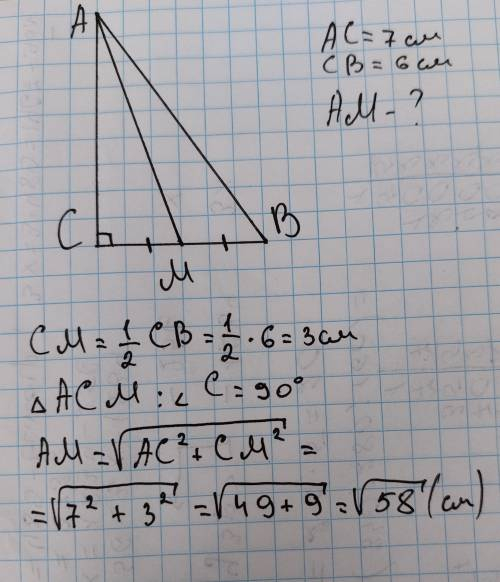 A
AC = 7 см
CB = 6 см
AM - ?
C
B
M
CM = 1/2 CB = 1/2 · 6 = 3 см
△ ACM : ∠ C = 90°
AM = √(AC² + CM²) =
= √(7² + 3²) = √(49 + 9) = √58 (см)